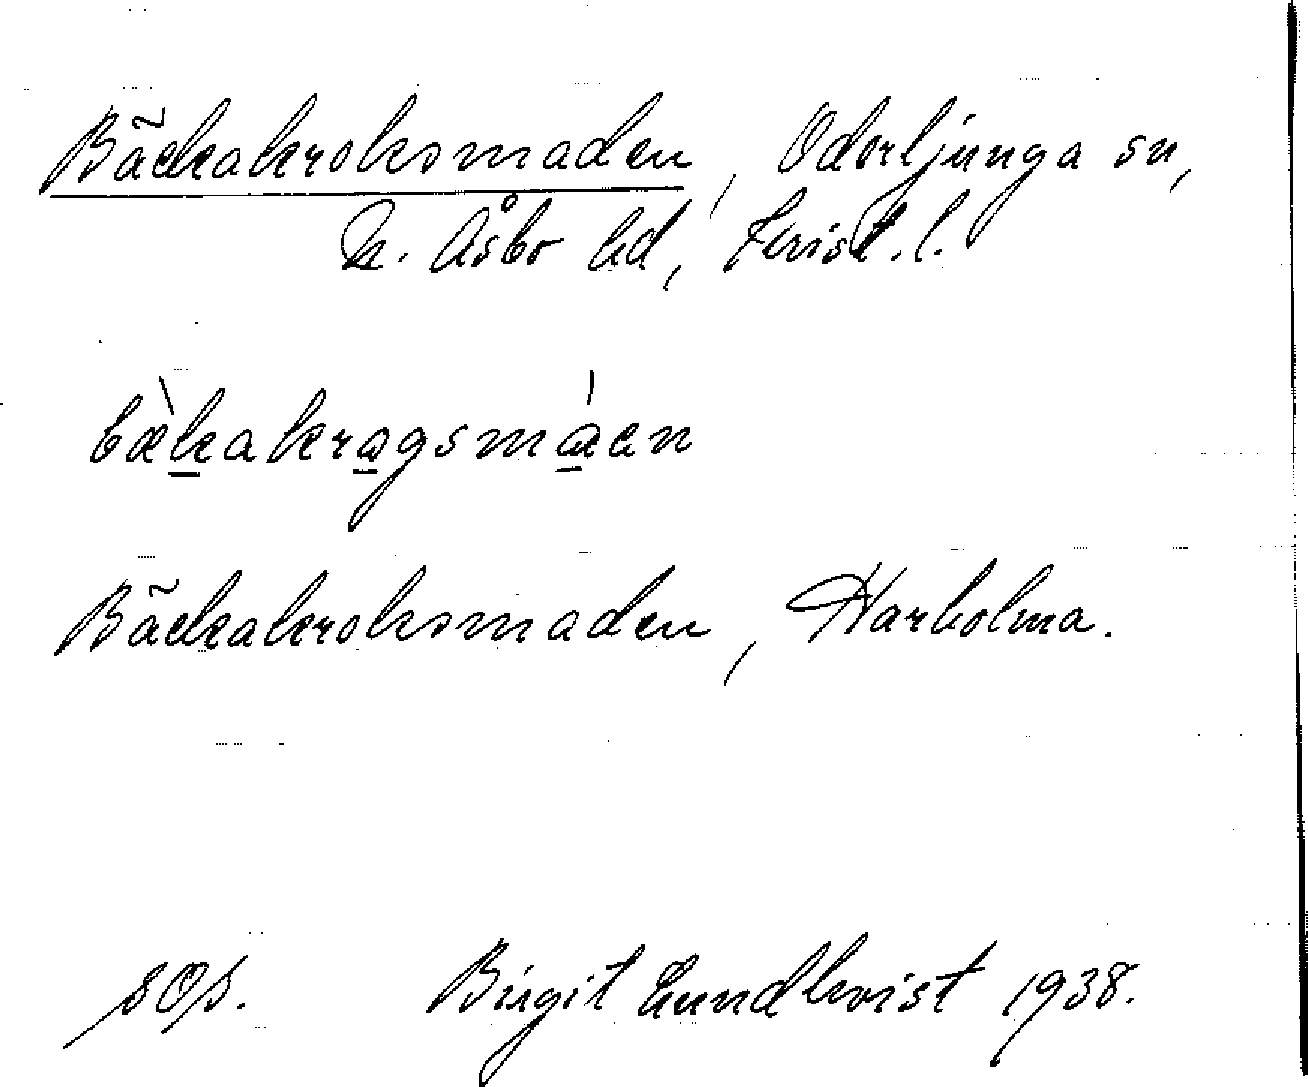 Bäckakroksmaden, Oderljunga sn,
N. Åsbo hd, Krist. l.
bæ̀kakrågsmáen
Bäckakroksmaden, Harholma.
sOs. Birgit Lundkvist 1938.